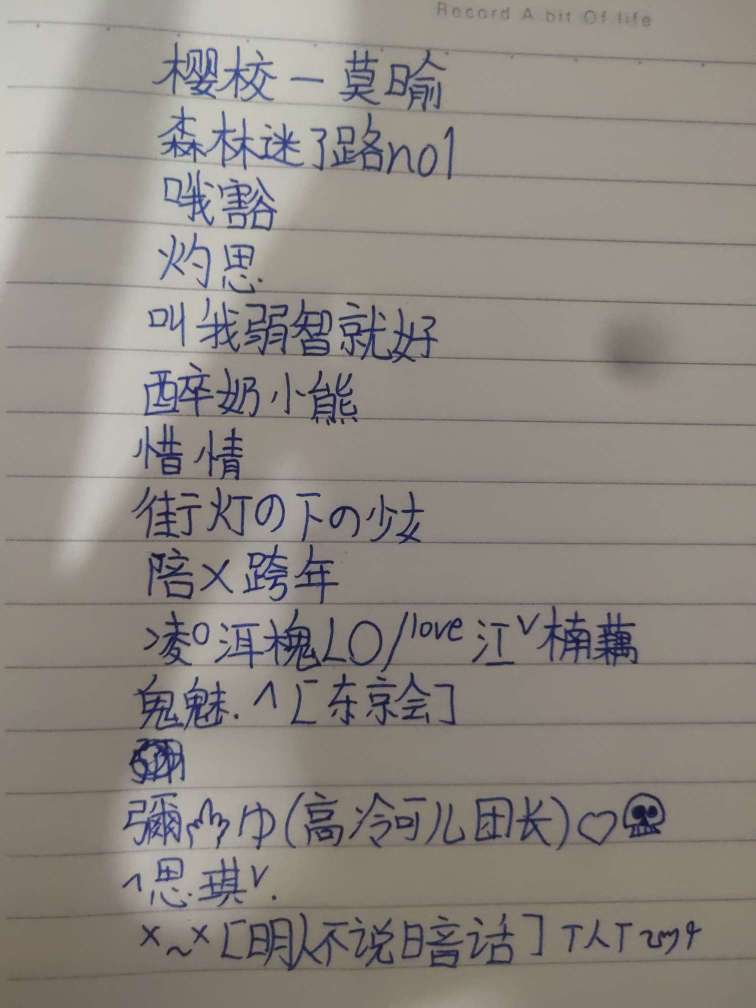 Record A bit Of life
樱校一莫瑜
森林迷了路no1
哦豁
灼思
叫我弱智就好
醉奶小熊
惜情
街灯の下の少女
陪乂跨年
凌º洱槐LO/love江ˇ楠藕
鬼魅.^[东京会]
彌ゆ(高冷可儿团长)♡💀
^思.琪ˇ.
×~×[明人不说暗话]T人T